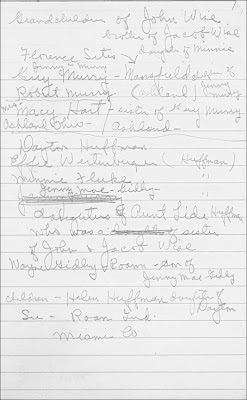 Grandchildren of John Wise
brother of Jacob Wise
Florence Sites daughter of Minnie
Jenny - Minnie
Guy Murry - Mansfield son of
Robert Murry (Ashland) Jenny Murry
Mrs Macy Hart - sister of Guy Murry
Ashland Ohio - Ashland -
Dayton Huffman
Effie Weitenburger (Huffman)
Minnie Fluke "
Jenny Mae - Gidly "
daughters of Aunt Lida Huffman
who was a sister
of John & Jacob Wise
Wayne Gidly - Roann - son of
Jenny Mae Gidly
children - Helen Huffman daughter of
Dayton
In - Roan Ind.
Miami Co